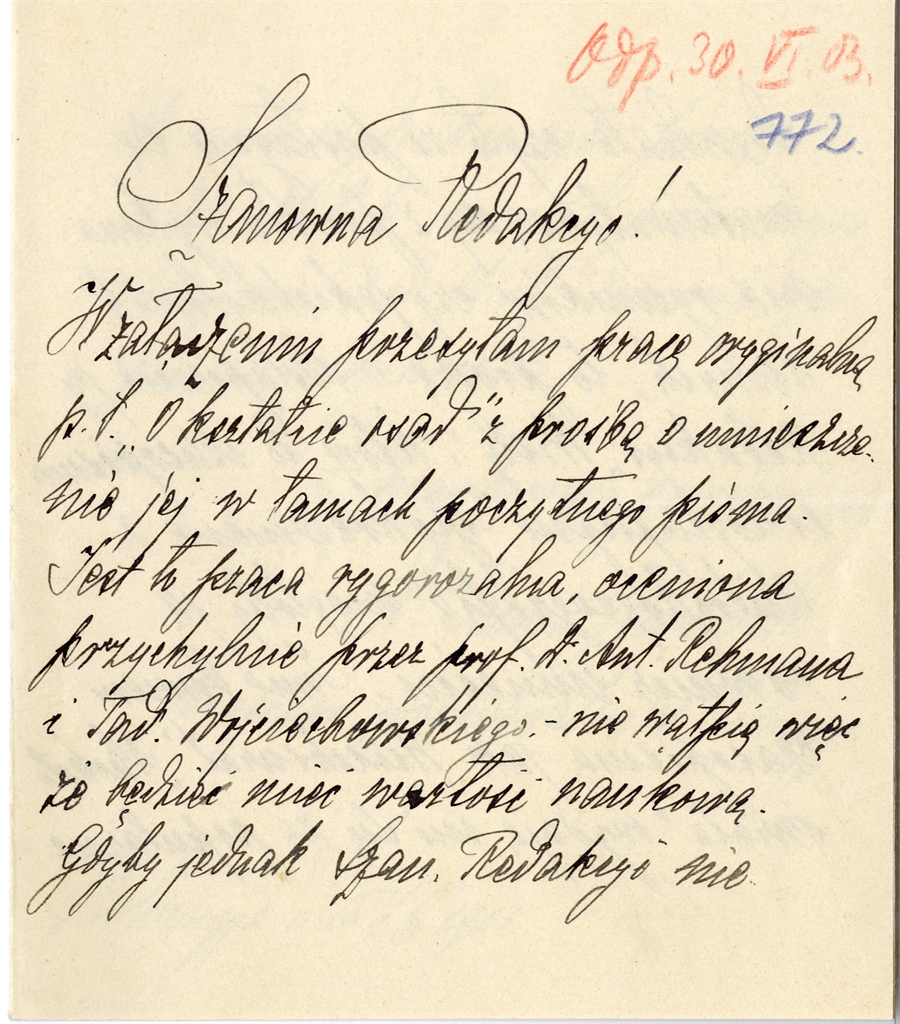 Odp. 30. VI. 03.
772.
Szanowna Redakcyo!
W załączeniu przesyłam pracę oryginalną
p. t. „O kształcie osad" z prośbą o umieszcze-
nie jej w łamach poczytnego pisma.
Jest to praca rygorozalna, oceniona
przychylnie przez prof. d. Ant. Rehmana
i Tad. Wojciechowskiego - nie wątpię więc
że będzie mieć wartość naukową.
Gdyby jednak Szan. Redakcyo nie